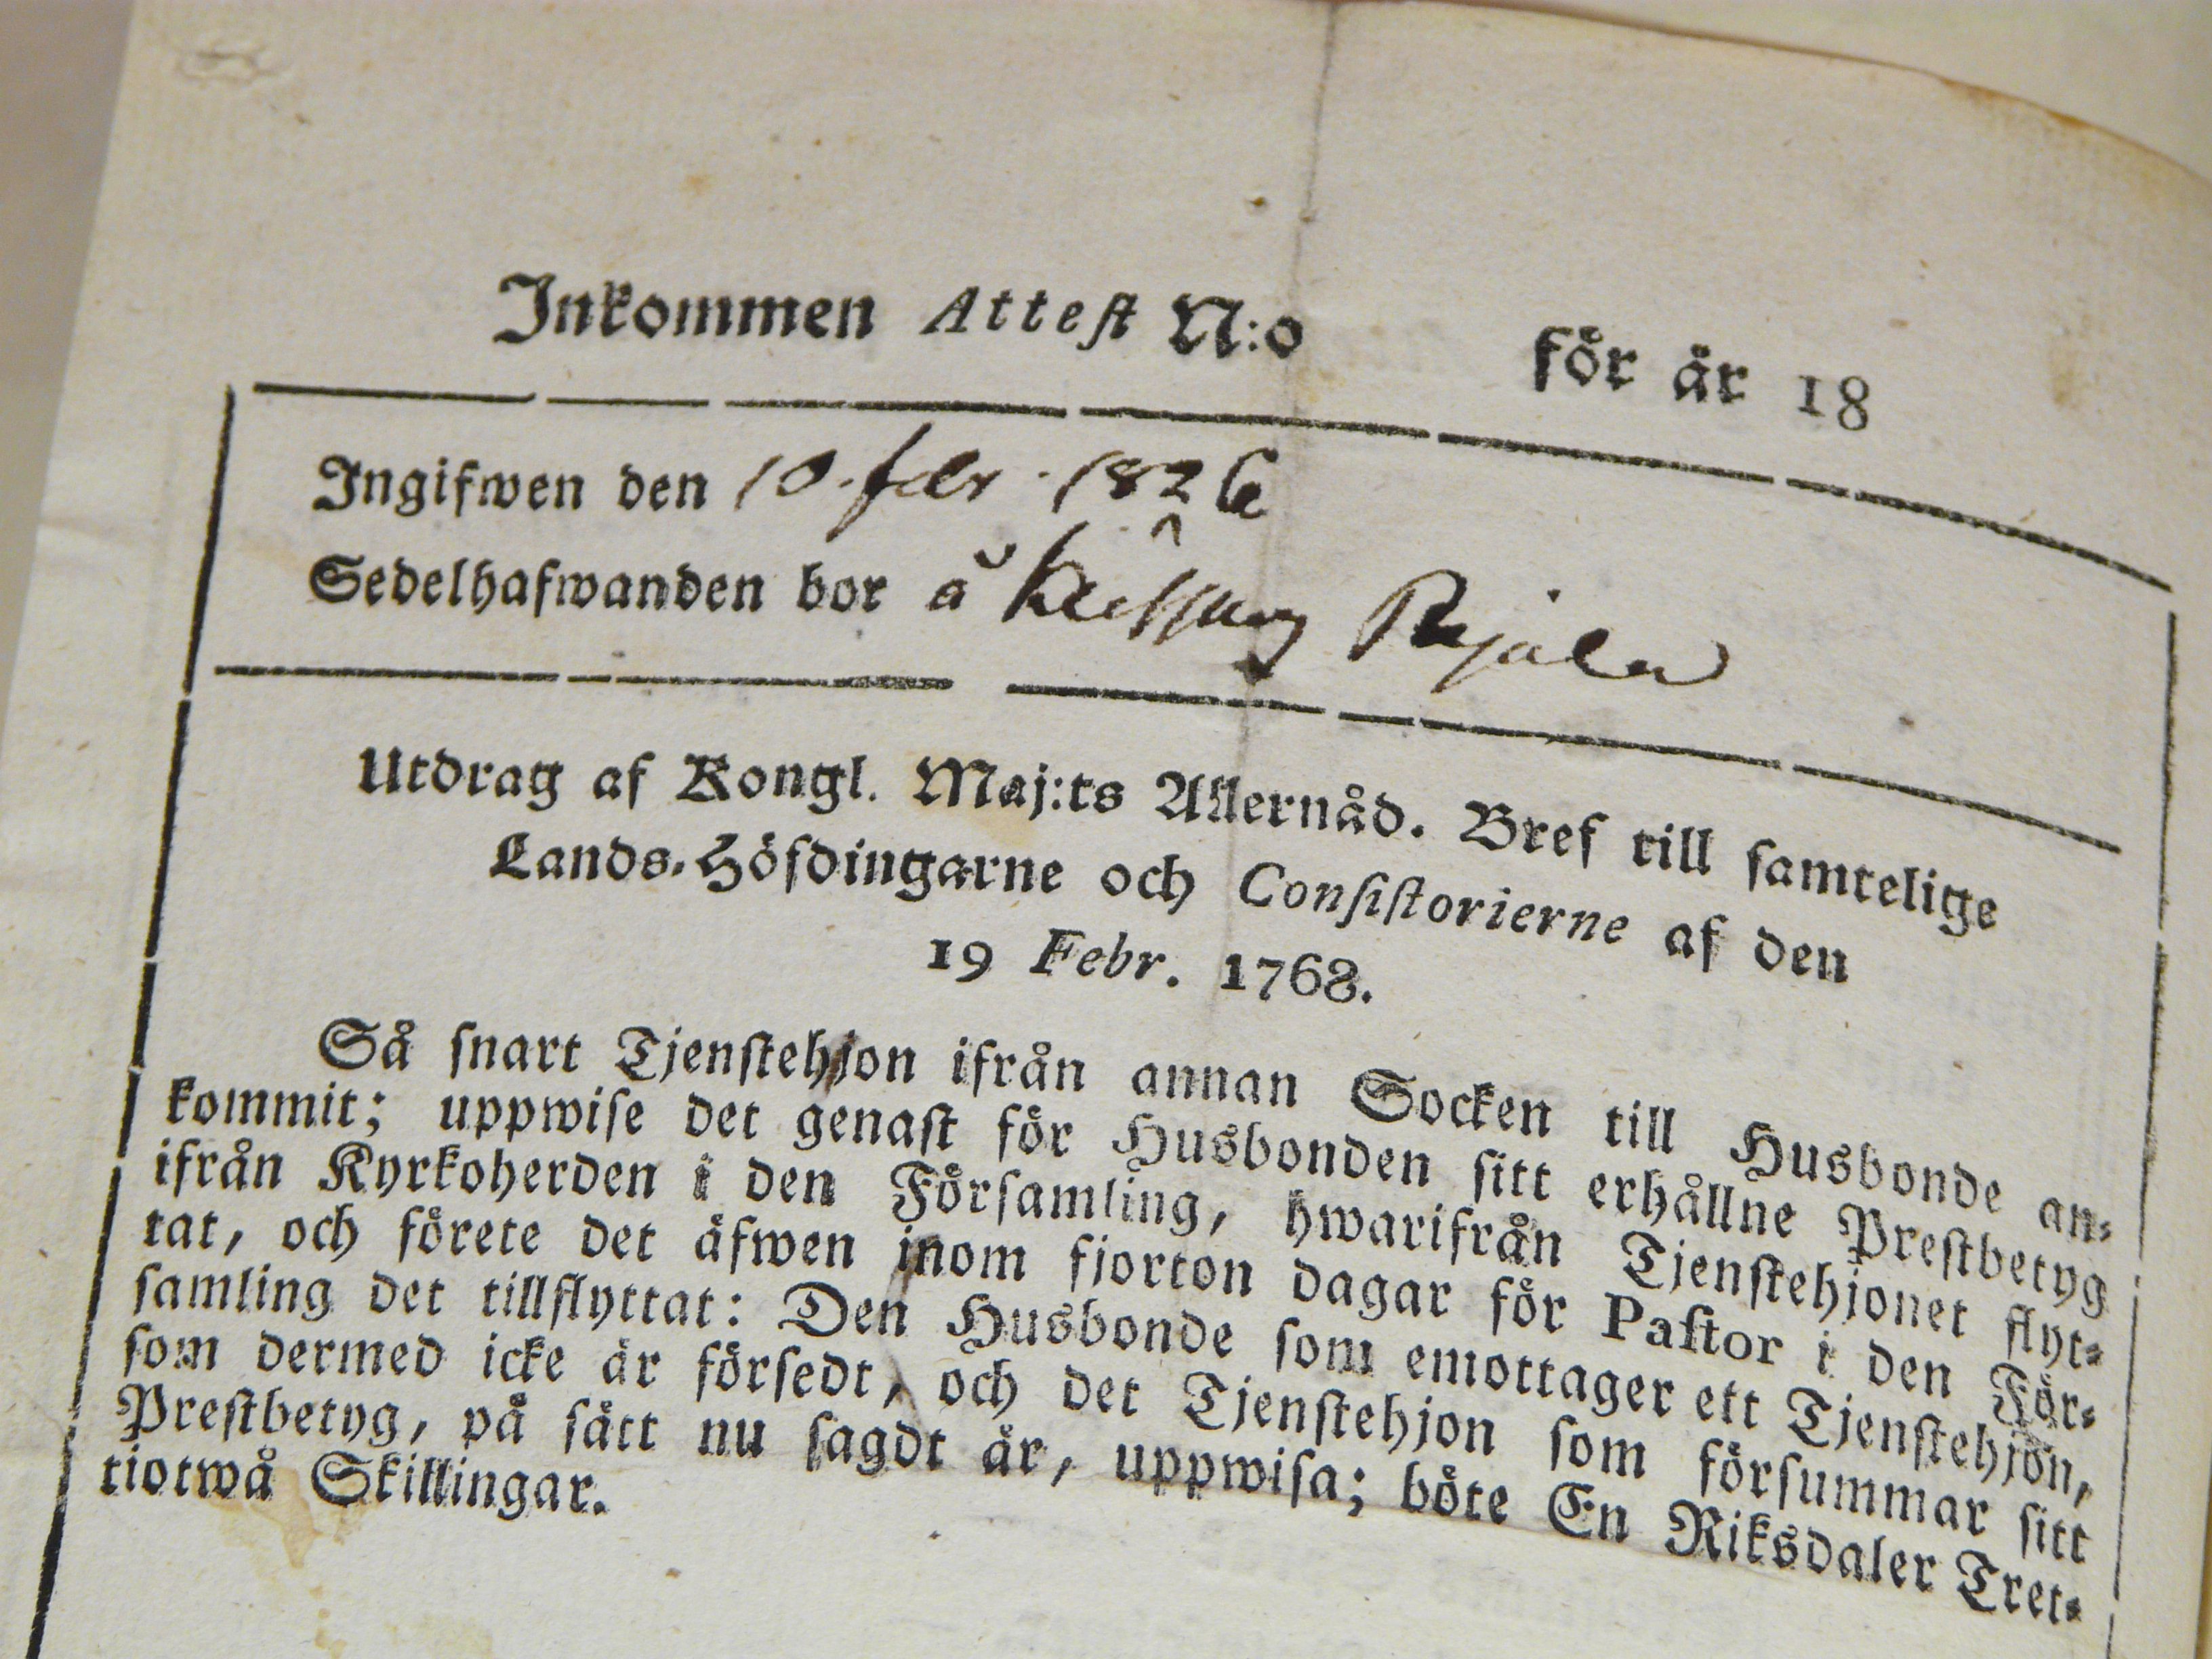 Inkommen Attest N:o för år 18
Ingifwen den 10. febr. 1826
Sedelhafwanden bor å
Utdrag af Kongl. Maj:ts Allernåd. Bref till samtelige
Lands-Höfdingarne och Consistorierne af den
19 Febr. 1768.
Så snart Tjenstehjon ifrån annan Socken till Husbonde an-
kommit; uppwise det genast för Husbonden sitt erhållne Prestbetyg
ifrån Kyrkoherden i den Församling, hwarifrån Tjenstehjonet flyt-
tat, och förete det äfwen inom fjorton dagar för Pastor i den För-
samling det tillflyttat: Den Husbonde som emottager ett Tjenstehjon,
som dermed icke är försedt, och det Tjenstehjon som försummar sitt
Prestbetyg, på sätt nu sagdt är, uppwisa; böte En Riksdaler Tret-
tiotwå Skillingar.